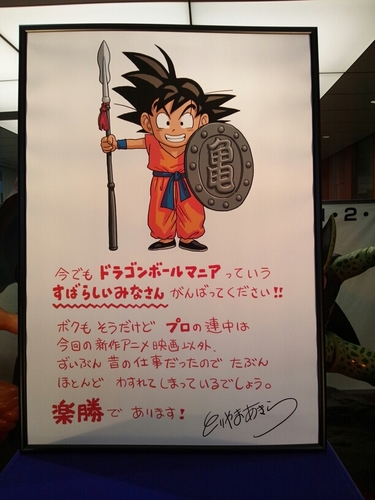 亀
2.
今でも ドラゴンボールマニアっていう
すばらしいみなさん がんばってください!!
ボクも そうだけど プロの連中は
今回の新作アニメ映画以外、
ずいぶん 昔の仕事だったので たぶん
ほとんど わすれてしまっているでしょう。
楽勝で あります!
とりやまあきら